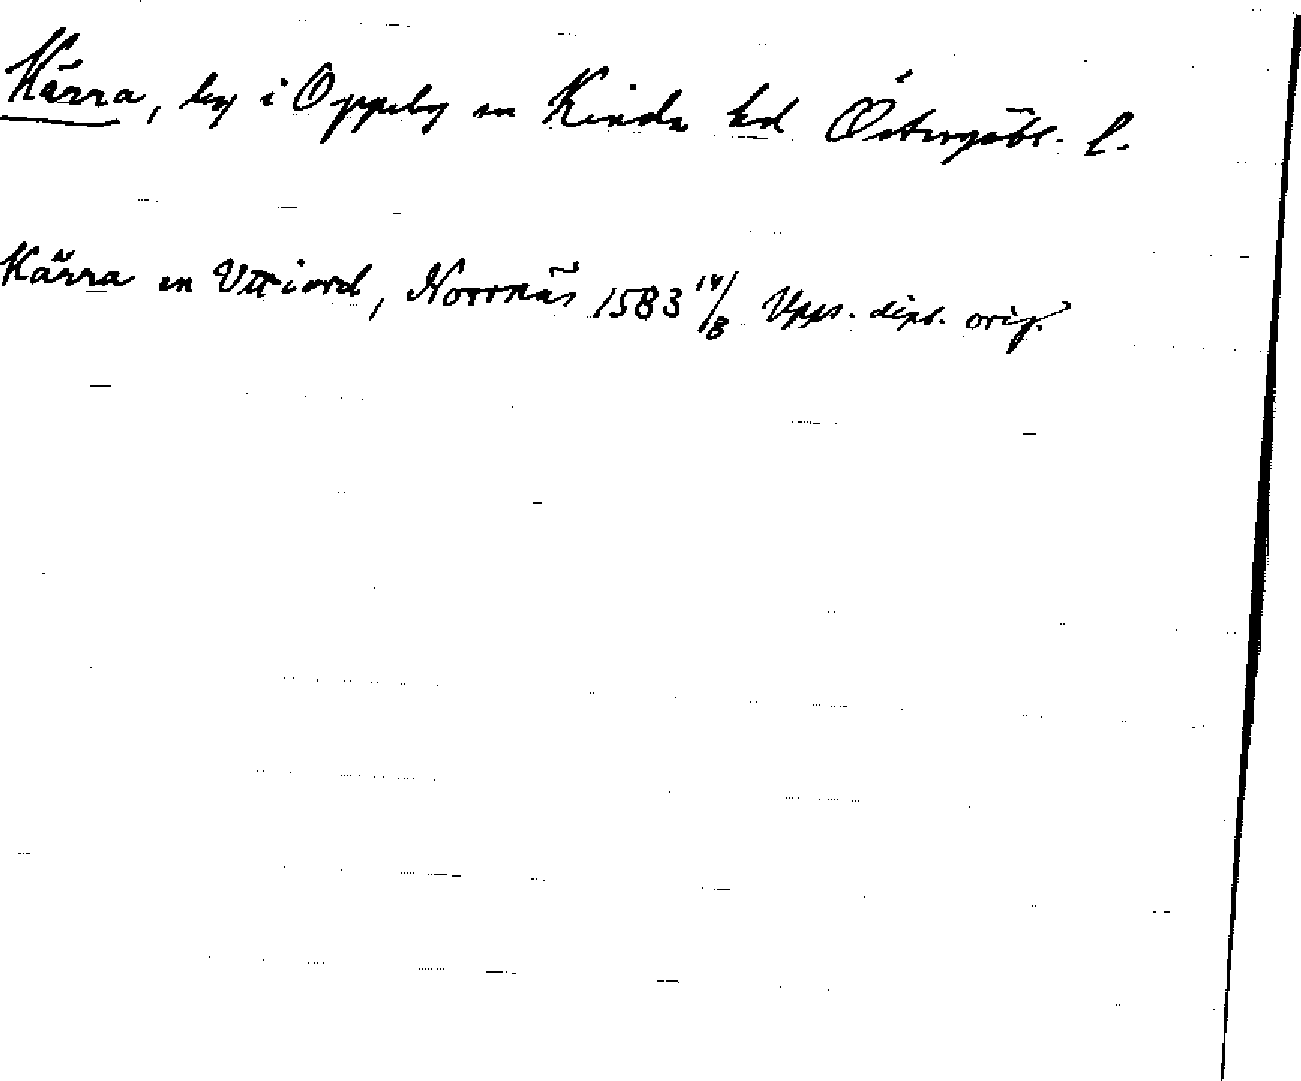 Kärra, by i Oppeby sn Kinda hd Östergötl. l.
Kärra en Uttiord, Norrnäs 1583 14/8 Upps. dipl. orig.